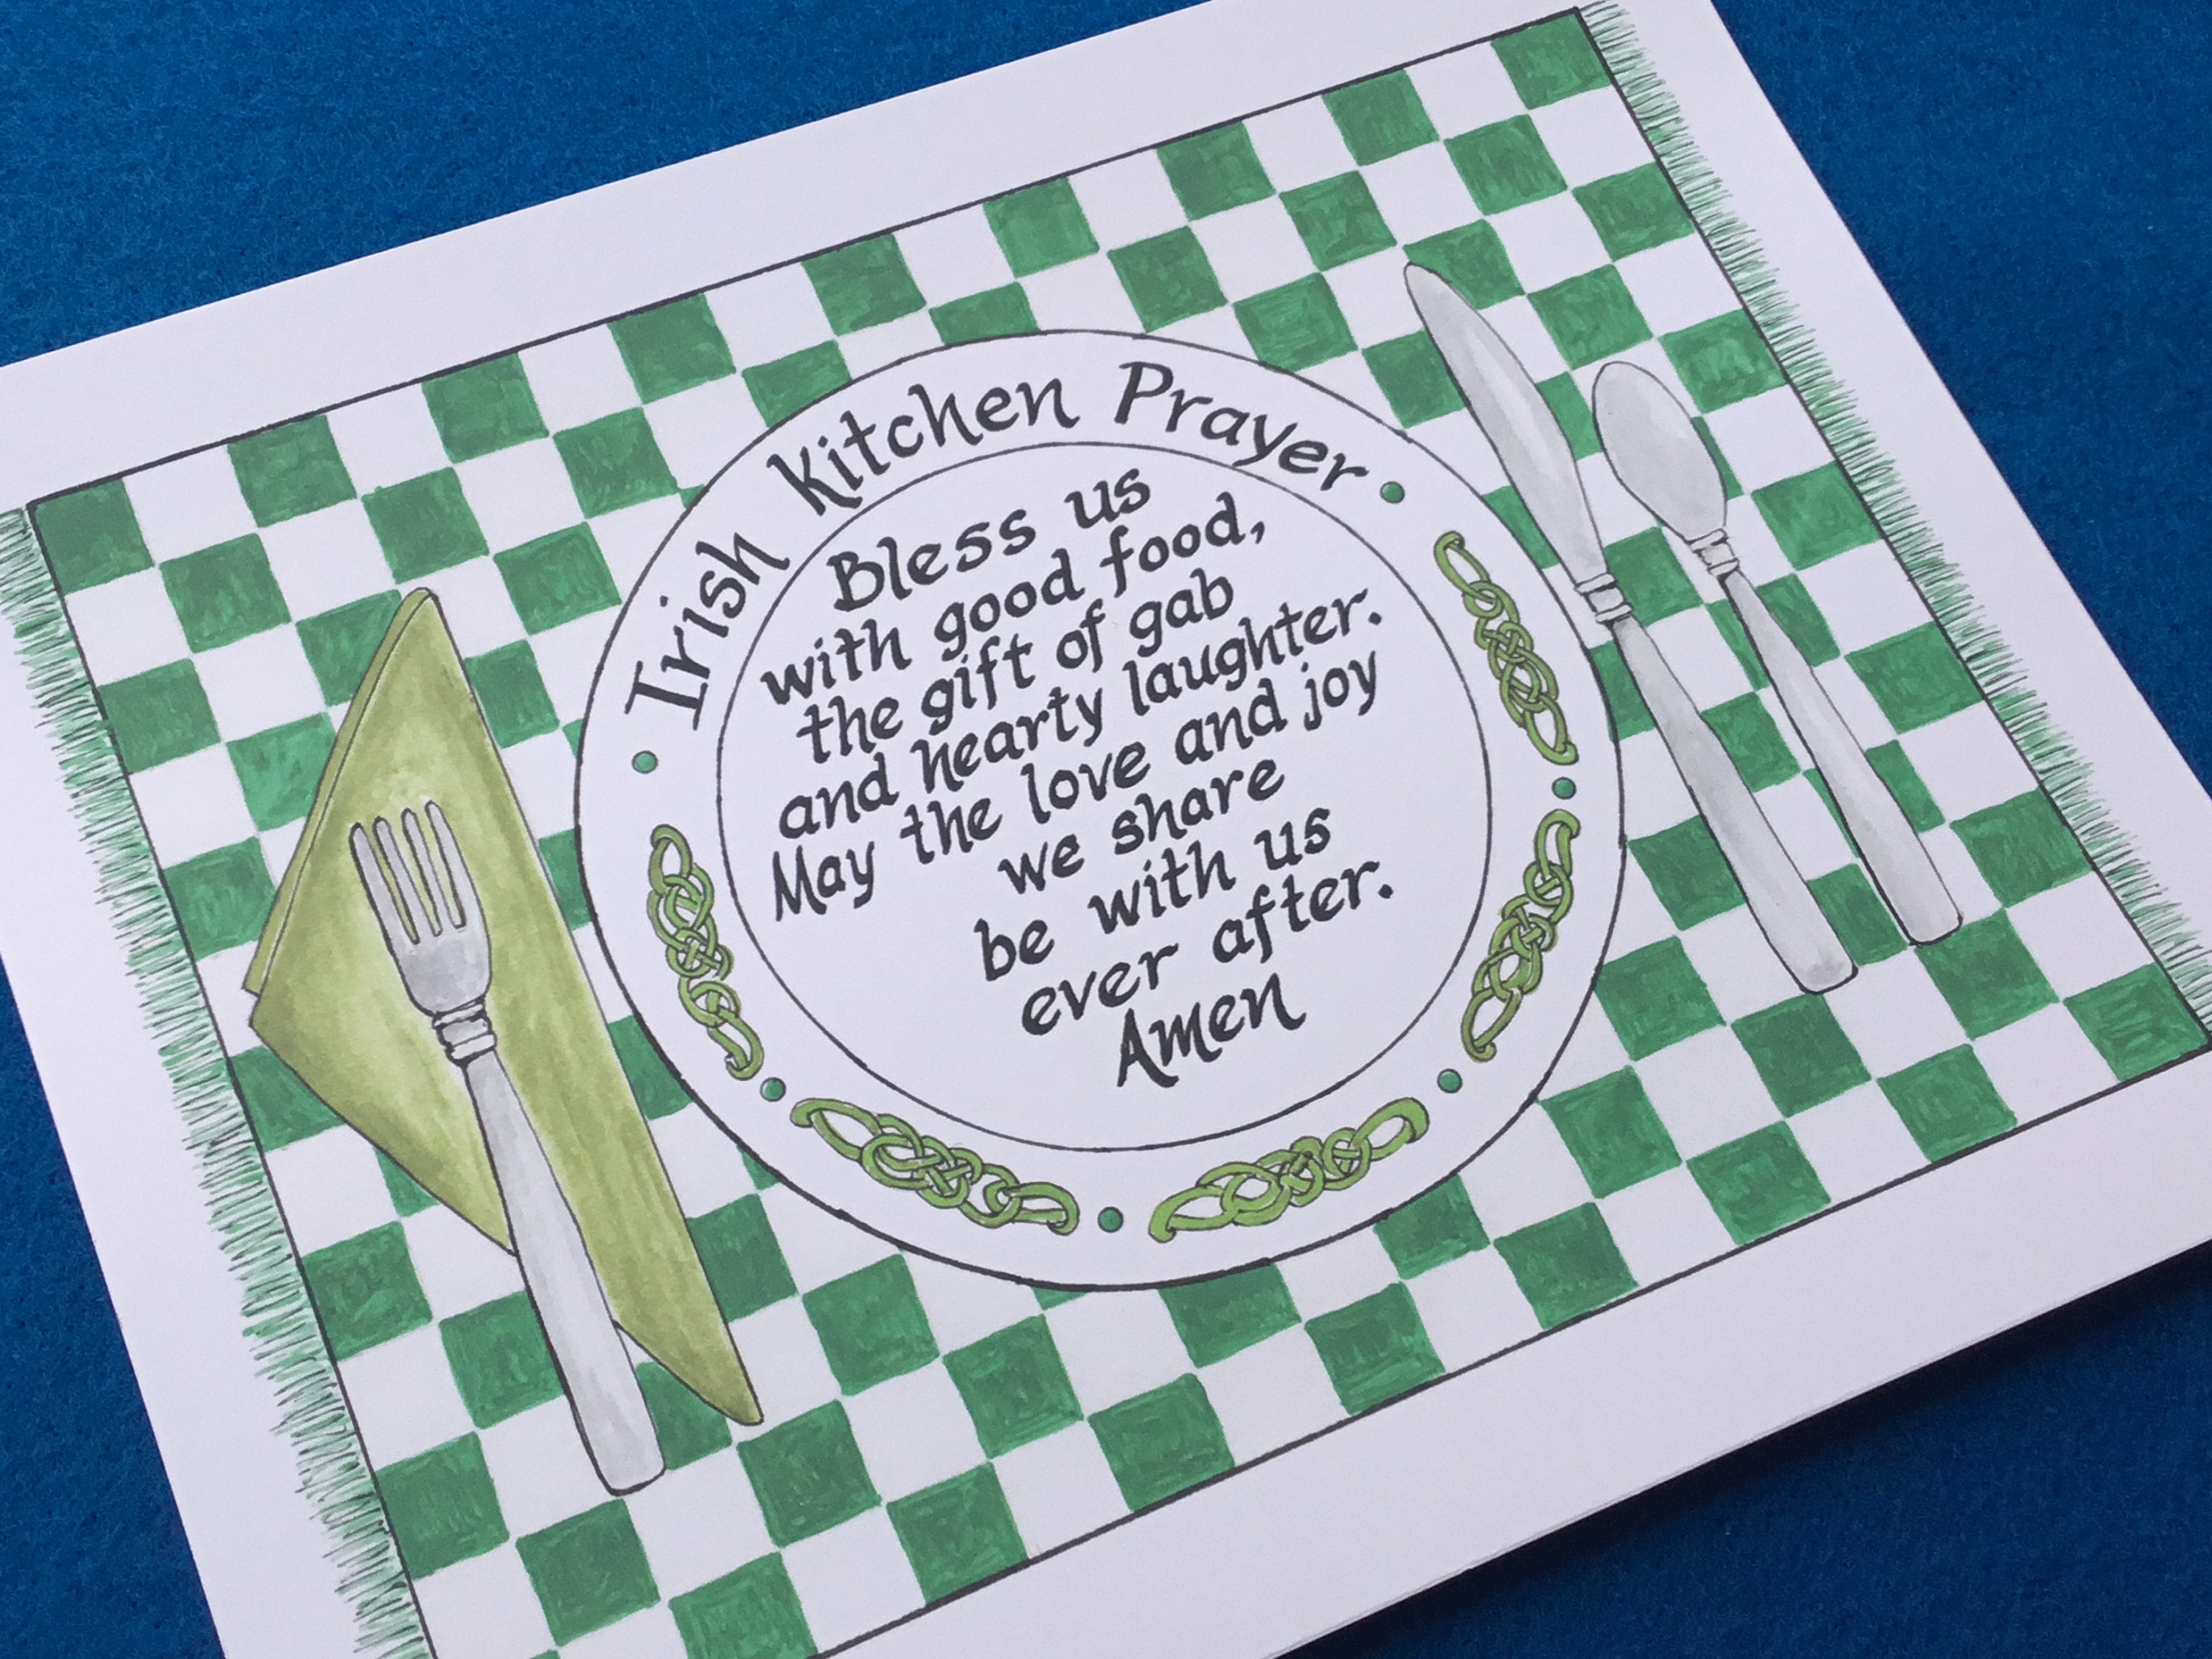 Irish Kitchen Prayer
Bless us
with good food,
the gift of gab
and hearty laughter.
May the love and joy
we share
be with us
ever after.
Amen